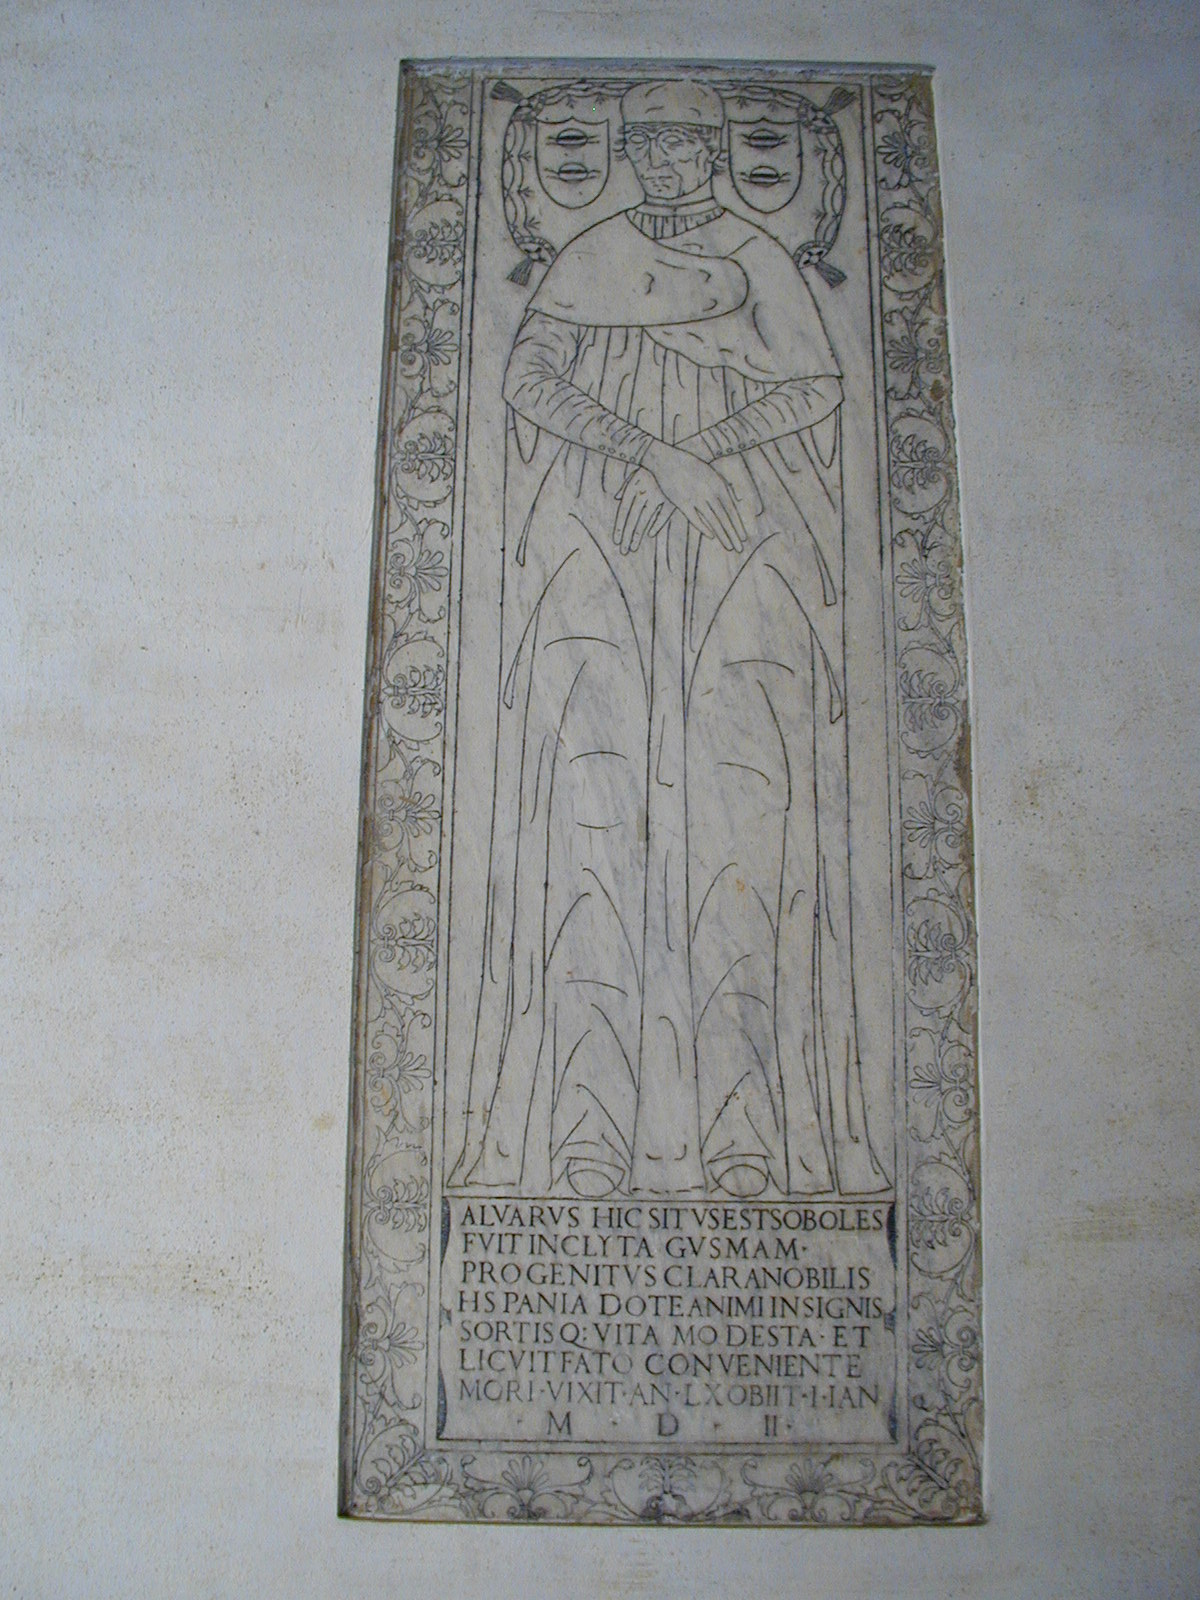 ALVARVS HIC SITVSESTSOBOLES
FVITINCLYTA GVSMAM·
PROGENITVS CLARANOBILIS
HSPANIA DOTEANIMIINSIGNIS
SORTISQ:VITA MODESTA·ET
LICVITFATO CONVENIENTE
MORI·VIXIT·AN·LXOBIIT·I·IAN
·M·D·II·